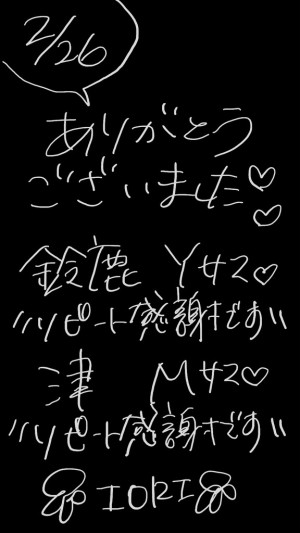 2/26
ありがとう
ございました♡♡
鈴鹿 Yサマ♡
〃リピート感謝です〃
津 Mサマ♡
〃リピート感謝です〃
IORI